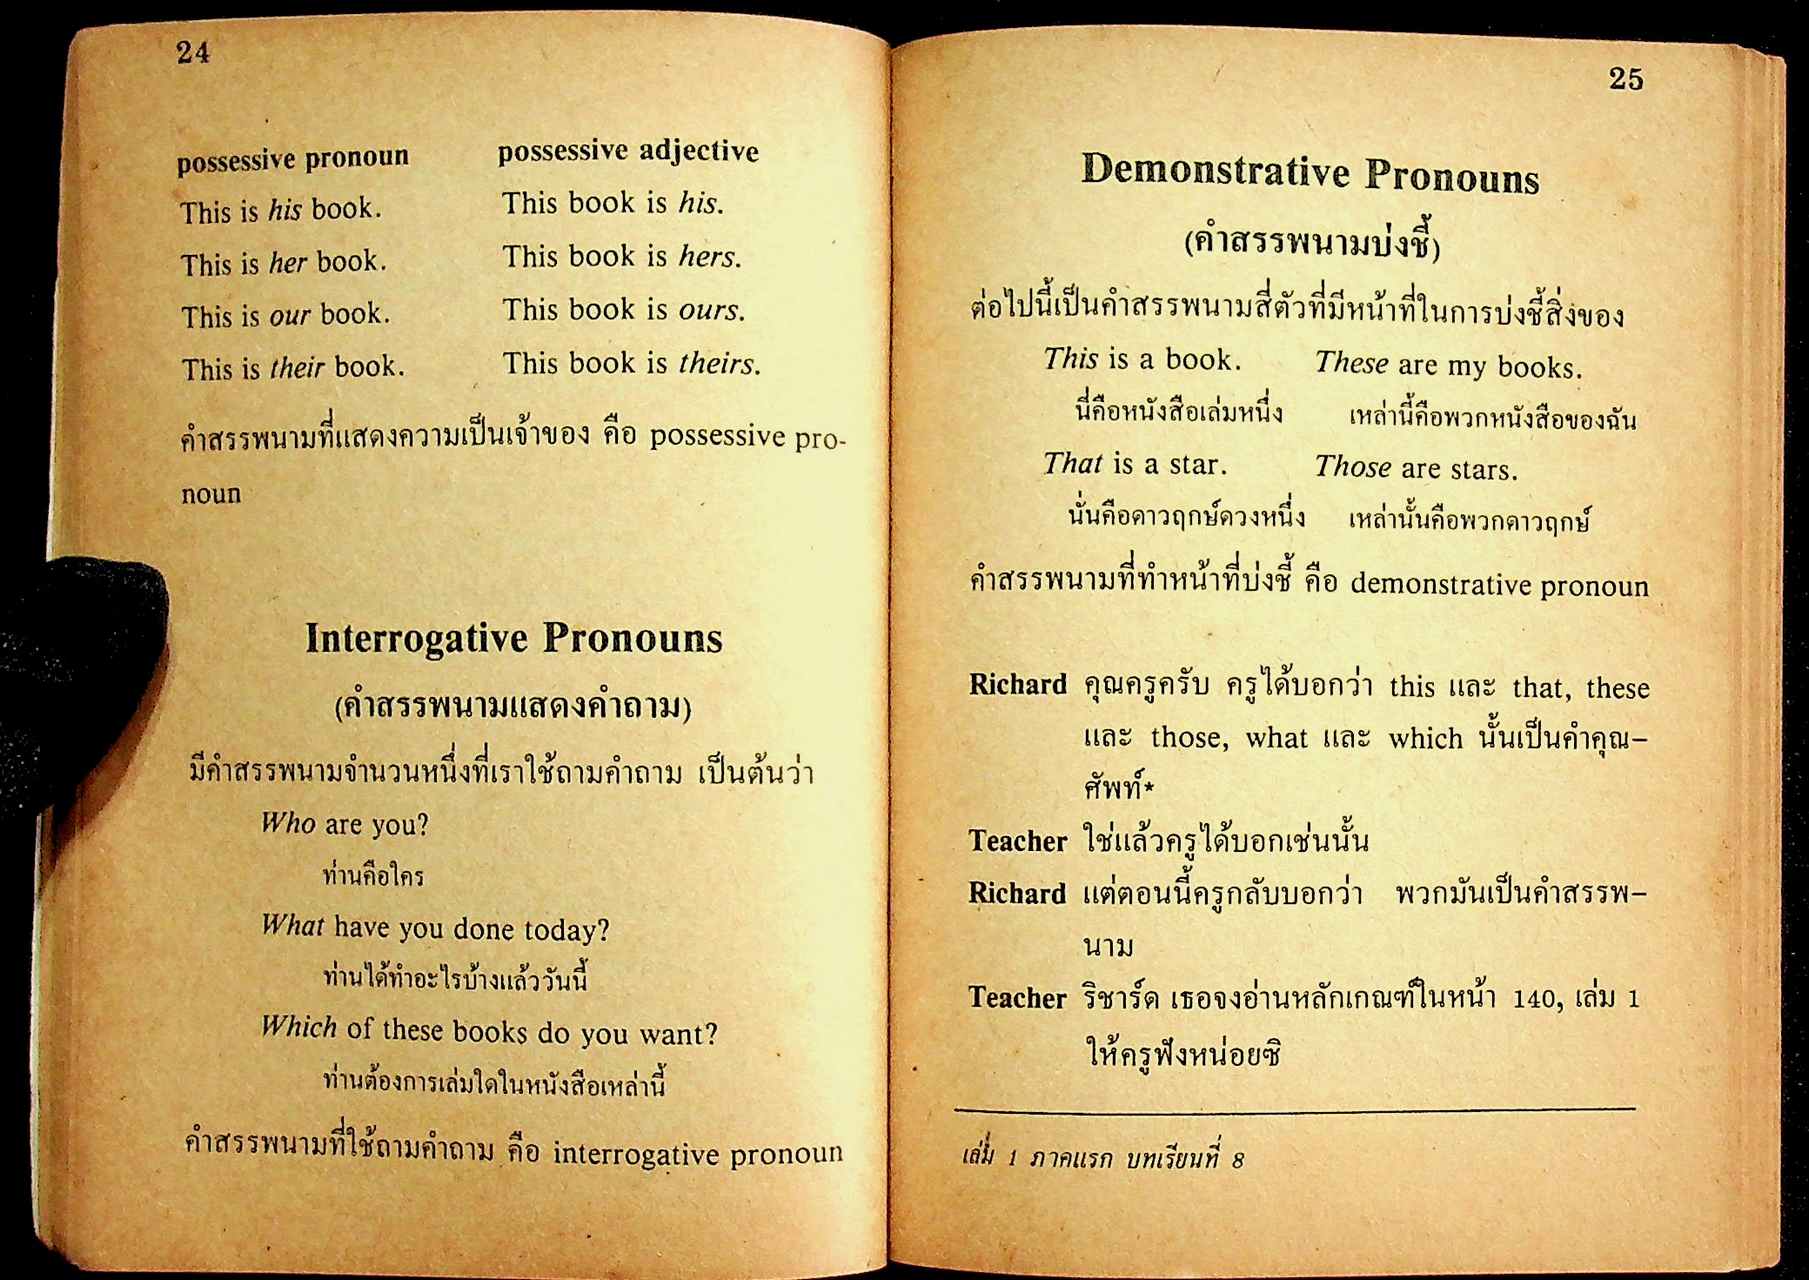 24
possessive pronoun possessive adjective
This is his book. This book is his.
This is her book. This book is hers.
This is our book. This book is ours.
This is their book. This book is theirs.
คำสรรพนามที่แสดงความเป็นเจ้าของ คือ possessive pro-
noun
Interrogative Pronouns
(คำสรรพนามแสดงคำถาม)
มีคำสรรพนามจำนวนหนึ่งที่เราใช้ถามคำถาม เป็นต้นว่า
Who are you?
ท่านคือใคร
What have you done today?
ท่านได้ทำอะไรบ้างแล้ววันนี้
Which of these books do you want?
ท่านต้องการเล่มใดในหนังสือเหล่านี้
คำสรรพนามที่ใช้ถามคำถาม คือ interrogative pronoun
25
Demonstrative Pronouns
(คำสรรพนามบ่งชี้)
ต่อไปนี้เป็นคำสรรพนามสี่ตัวที่มีหน้าที่ในการบ่งชี้สิ่งของ
This is a book. These are my books.
นี่คือหนังสือเล่มหนึ่ง เหล่านี้คือพวกหนังสือของฉัน
That is a star. Those are stars.
นั่นคือดาวฤกษ์ดวงหนึ่ง เหล่านั้นคือพวกดาวฤกษ์
คำสรรพนามที่ทำหน้าที่บ่งชี้ คือ demonstrative pronoun
Richard คุณครูครับ ครูได้บอกว่า this และ that, these
และ those, what และ which นั้นเป็นคำคุณ–
ศัพท์*
Teacher ใช่แล้วครูได้บอกเช่นนั้น
Richard แต่ตอนนี้ครูกลับบอกว่า พวกมันเป็นคำสรรพ–
นาม
Teacher ริชาร์ด เธอจงอ่านหลักเกณฑ์ในหน้า 140, เล่ม 1
ให้ครูฟังหน่อยซิ
เล่ม 1 ภาคแรก บทเรียนที่ 8